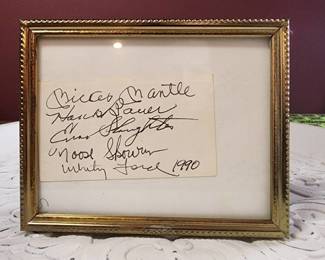 Mickey Mantle
Hank Bauer
Enos Slaughter
Moose Skowron
Whitey Ford 1990